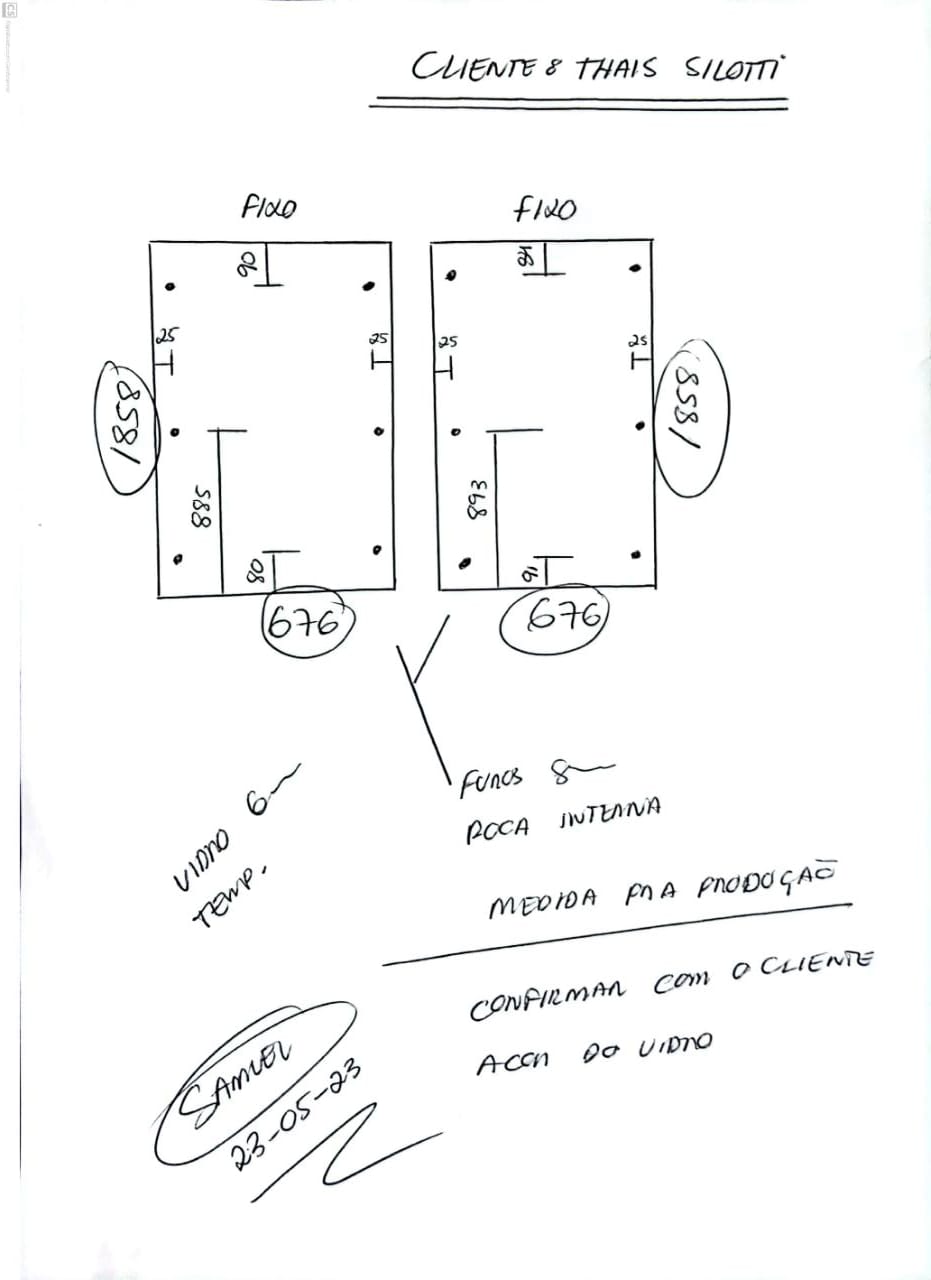 CS
Digitalizado com CamScanner
CLIENTE: THAIS SILOTTI
FIXO
FIXO
90
25
25
25
25
1858
1858
885
893
80
91
676
676
FUROS 8
ROCA INTERNA
VIDRO 6
TEMP.
MEDIDA PRA PRODUÇÃO
CONFIRMAR COM O CLIENTE
A COR DO VIDRO
SAMUEL
23-05-23